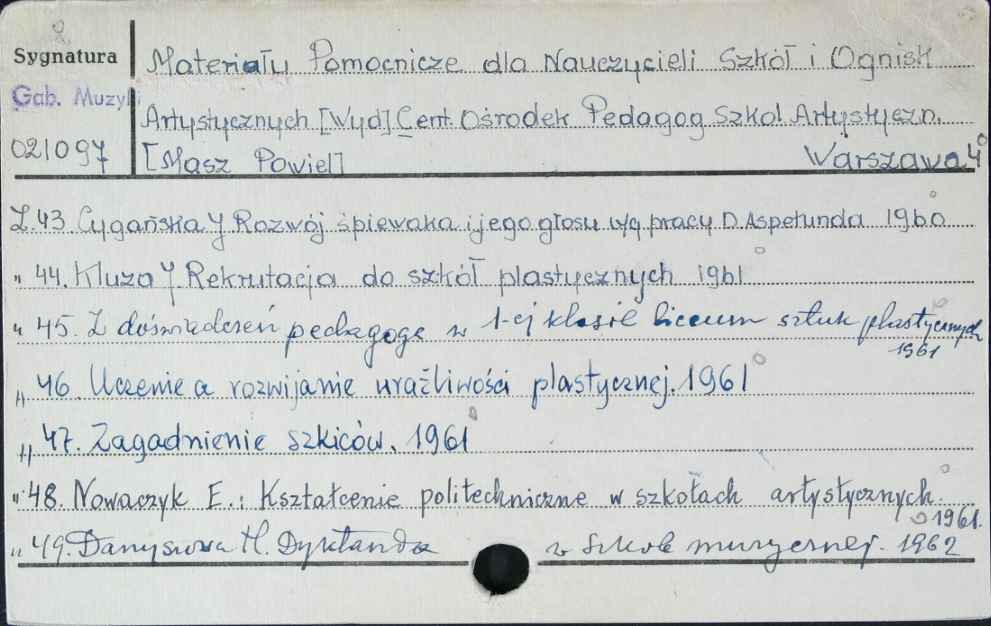 Sygnatura
Materiały Pomocnicze dla Nauczycieli Szkół i Ognisk
Gab. Muzyki
Artystycznych [Wyd] Cent. Ośrodek Pedagog Szkol. Artystyczn.
021097
[Masz Powiel] Warszawa 4°
Z.43 Cygańska J Rozwój śpiewaka i jego głosu w/g pracy D. Aspelunda 1960
" 44. Kluza J. Rekrutacja do szkół plastycznych 1961
" 45. Z doświadczeń pedagoga w 1-ej klasie liceum sztuk plastycznych
1961
" 46. Uczenie a rozwijanie wrażliwości plastycznej. 1961
" 47. Zagadnienie szkiców. 1961
" 48. Nowaczyk E.: Kształcenie politechniczne w szkołach artystycznych.
1961.
" 49. Danyszowa H. Dyktando w szkole muzycznej. 1962